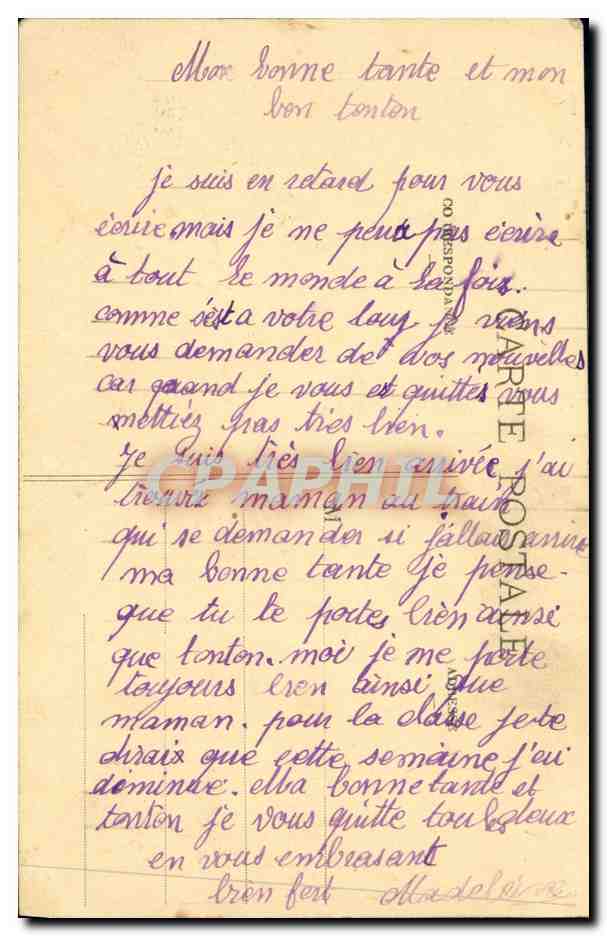 Ma bonne tante et mon
bon tonton
je suis en retard pour vous
écrire mais je ne peux pas écrire
à tout le monde à la fois.
comme c'est a votre tour je viens
vous demander de vos nouvelles
car quand je vous et quittés vous
n'ettiez pas tres bien.
Je suis très bien arrivée j'ai
trouvé maman au train
qui se demander si j'allais arrive
ma bonne tante je pense
que tu te portes bien ainsi
que tonton. moi je me porte
toujours bien ainsi que
maman. pour la classe je te
diraix que cette semaine j'ai
diminue. Ma bonne tante et
tonton je vous quitte tous deux
en vous embrasant
bien fort Madeleine
CORRESPONDANCE
CARTE POSTALE
M
ADRESSE
CPAPHIL